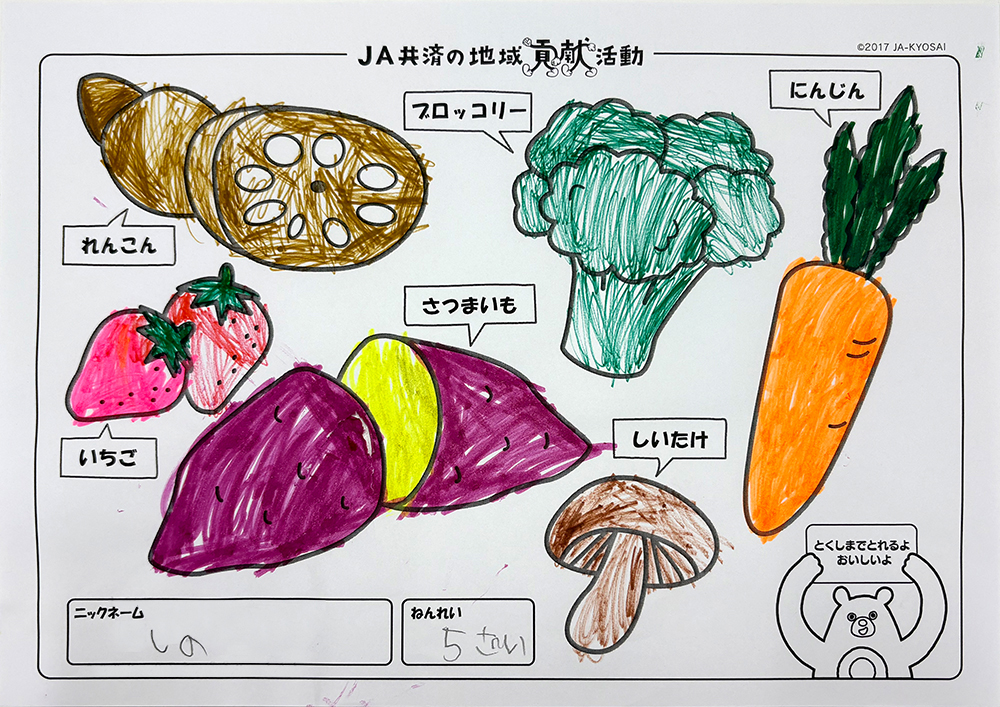 JA共済の地域貢献活動
©2017 JA-KYOSAI
にんじん
ブロッコリー
れんこん
さつまいも
いちご
しいたけ
とくしまでとれるよ
おいしいよ
ニックネーム
しの
ねんれい
5さい